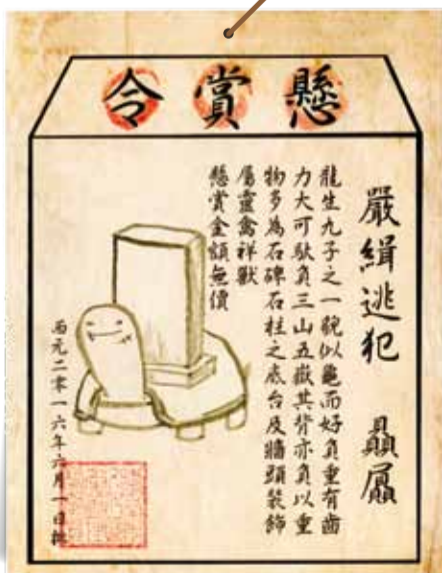 懸賞令
嚴緝逃犯 贔屭
龍生九子之一貌似龜而好負重有齒
力大可馱負三山五嶽其背亦負以重
物多為石碑石柱之底台及牆頭裝飾
屬靈禽祥獸
懸賞金額無價
西元二零一六年六月一日批